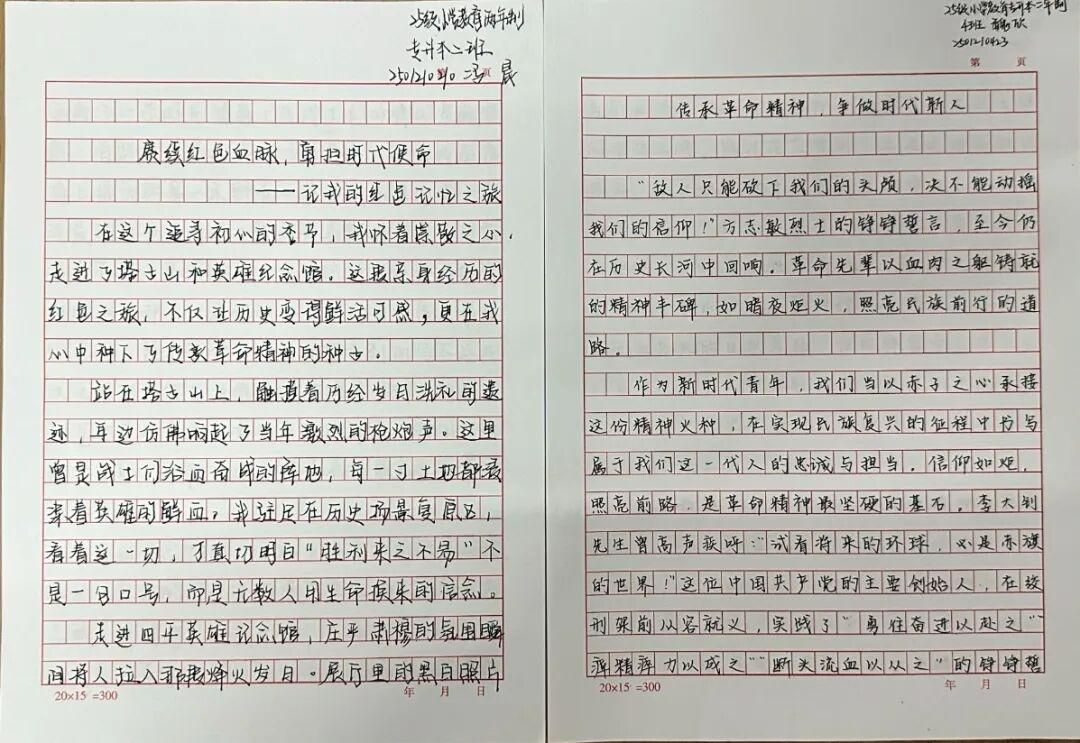 25级小学教育两年制
专升本二班
2501210410 冯晨
页
赓续红色血脉，肩担时代使命
——记我的红色记忆之旅
在这个追寻初心的季节，我怀着崇敬之心，
走进了塔子山和英雄纪念馆。这段亲身经历的
红色之旅，不仅让历史变得鲜活可感，更在我
心中种下了传承革命精神的种子。
站在塔子山上，触摸着历经岁月洗礼的遗
迹，耳边仿佛响起了当年激烈的枪炮声。这里
曾是战士们浴血奋战的阵地，每一寸土地都承
载着英雄的鲜血，我驻足在历史场景复原区，
看着这一切，才真切明白“胜利来之不易”不
是一句口号，而是无数人用生命换来的信念。
走进四平英雄纪念馆，庄严肃穆的氛围瞬
间将人拉入那段烽火岁月。展厅里的黑白照片
20×15=300
年 月 日
25级小学教育专升本二年制
4班
2501210423
第 页
传承革命精神，争做时代新人
“敌人只能砍下我们的头颅，决不能动摇
我们的信仰！”方志敏烈士的铮铮誓言，至今仍
在历史长河中回响。革命先辈以血肉之躯铸就
的精神丰碑，如暗夜炬火，照亮民族前行的道
路。
作为新时代青年，我们当以赤子之心承接
这份精神火种，在实现民族复兴的征程中书写
属于我们这一代人的忠诚与担当。信仰如炬，
照亮前路，是革命精神最坚硬的基石。李大钊
先生曾高声疾呼：“试看将来的环球，必是赤旗
的世界！”这位中国共产党的主要创始人，在绞
刑架前从容就义，实践了“勇往奋进以赴之”“
瘅精瘁力以成之”“断头流血以从之”的铮铮誓
20×15=300
年 月 日